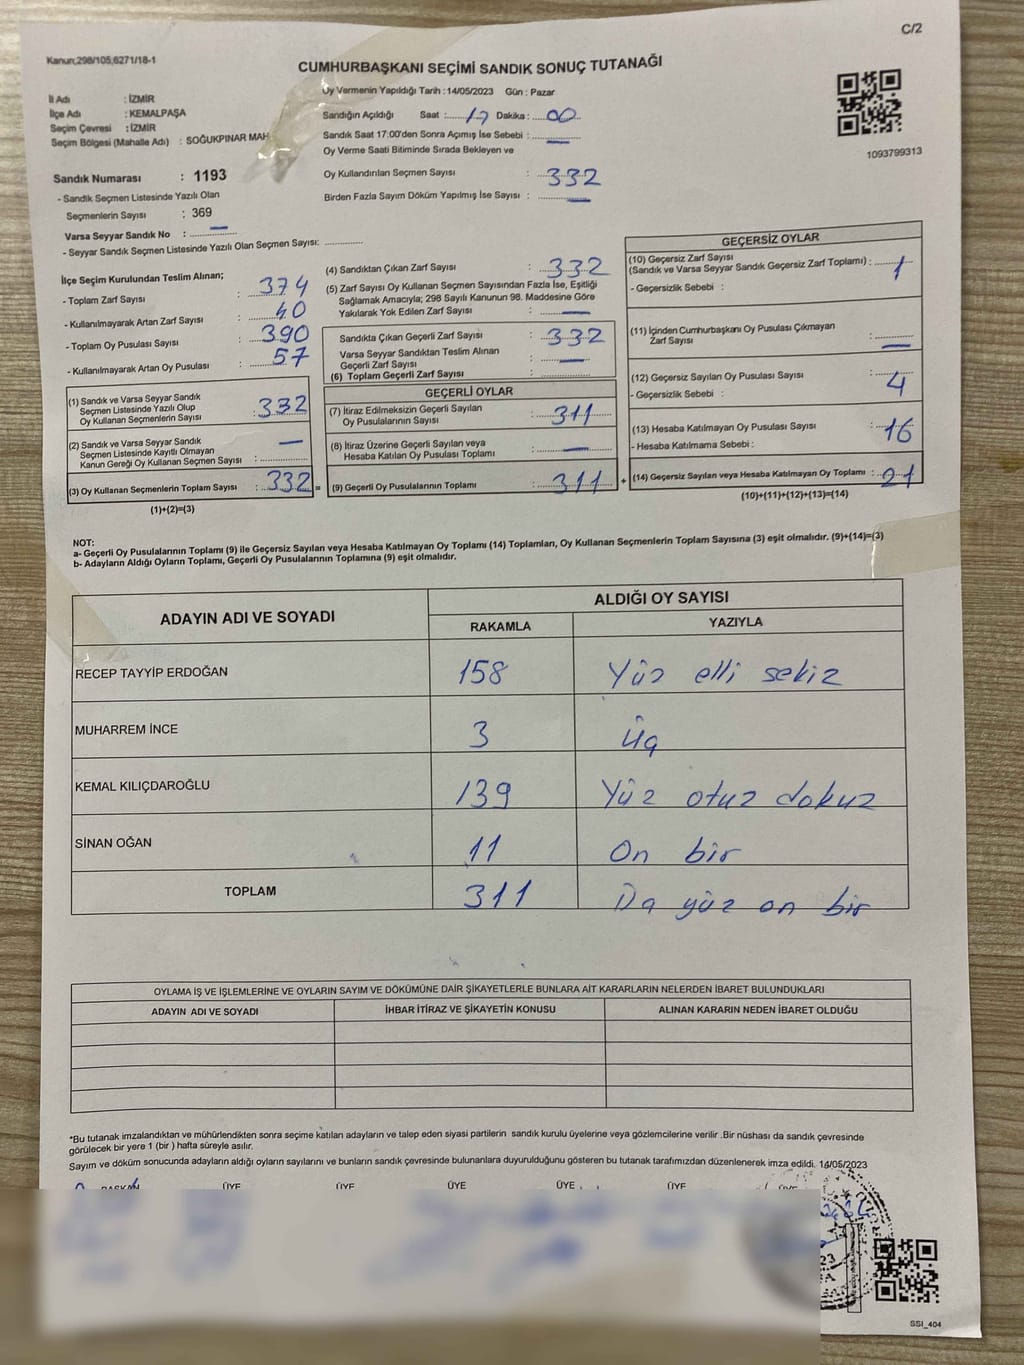 C/2
Kanun;298/105;6271/18-1
CUMHURBAŞKANI SEÇİMİ SANDIK SONUÇ TUTANAĞI
İl Adı : İZMİR
İlçe Adı : KEMALPAŞA
Seçim Çevresi : İZMİR
Seçim Bölgesi (Mahalle Adı) : SOĞUKPINAR MAH.
Oy Vermenin Yapıldığı Tarih : 14/05/2023 Gün : Pazar
Sandığın Açıldığı Saat : 17 Dakika : 00
Sandık Saat 17:00'den Sonra Açımış İse Sebebi : —
Oy Verme Saati Bitiminde Sırada Bekleyen ve
Oy Kullandırılan Seçmen Sayısı : 332
Birden Fazla Sayım Döküm Yapılmış İse Sayısı : —
1093799313
Sandık Numarası : 1193
- Sandık Seçmen Listesinde Yazılı Olan
Seçmenlerin Sayısı : 369
Varsa Seyyar Sandık No : —
- Seyyar Sandık Seçmen Listesinde Yazılı Olan Seçmen Sayısı: ............
İlçe Seçim Kurulundan Teslim Alınan;
- Toplam Zarf Sayısı : 374
- Kullanılmayarak Artan Zarf Sayısı : 40
- Toplam Oy Pusulası Sayısı : 390
- Kullanılmayarak Artan Oy Pusulası : 57
(1) Sandık ve Varsa Seyyar Sandık
Seçmen Listesinde Yazılı Olup
Oy Kullanan Seçmenlerin Sayısı : 332
(2) Sandık ve Varsa Seyyar Sandık
Seçmen Listesinde Kayıtlı Olmayan
Kanun Gereği Oy Kullanan Seçmen Sayısı : —
(3) Oy Kullanan Seçmenlerin Toplam Sayısı : 332 =
(1)+(2)=(3)
(4) Sandıktan Çıkan Zarf Sayısı : 332
(5) Zarf Sayısı Oy Kullanan Seçmen Sayısından Fazla İse, Eşitliği
Sağlamak Amacıyla; 298 Sayılı Kanunun 98. Maddesine Göre
Yakılarak Yok Edilen Zarf Sayısı : —
Sandıkta Çıkan Geçerli Zarf Sayısı : 332
Varsa Seyyar Sandıktan Teslim Alınan
Geçerli Zarf Sayısı : —
(6) Toplam Geçerli Zarf Sayısı : ............
GEÇERLİ OYLAR
(7) İtiraz Edilmeksizin Geçerli Sayılan
Oy Pusulalarının Sayısı : 311
(8) İtiraz Üzerine Geçerli Sayılan veya
Hesaba Katılan Oy Pusulası Toplamı : —
(9) Geçerli Oy Pusulalarının Toplamı : 311 +
GEÇERSİZ OYLAR
(10) Geçersiz Zarf Sayısı
(Sandık ve Varsa Seyyar Sandık Geçersiz Zarf Toplamı) : 1
- Geçersizlik Sebebi :
(11) İçinden Cumhurbaşkanı Oy Pusulası Çıkmayan
Zarf Sayısı : —
(12) Geçersiz Sayılan Oy Pusulası Sayısı : 4
- Geçersizlik Sebebi :
(13) Hesaba Katılmayan Oy Pusulası Sayısı : 16
- Hesaba Katılmama Sebebi :
(14) Geçersiz Sayılan veya Hesaba Katılmayan Oy Toplamı : 21
(10)+(11)+(12)+(13)=(14)
NOT:
a- Geçerli Oy Pusulalarının Toplamı (9) ile Geçersiz Sayılan veya Hesaba Katılmayan Oy Toplamı (14) Toplamları, Oy Kullanan Seçmenlerin Toplam Sayısına (3) eşit olmalıdır. (9)+(14)=(3)
b- Adayların Aldığı Oyların Toplamı, Geçerli Oy Pusulalarının Toplamına (9) eşit olmalıdır.
ADAYIN ADI VE SOYADI ALDIĞI OY SAYISI
RAKAMLA YAZIYLA
RECEP TAYYİP ERDOĞAN 158 Yüz elli sekiz
MUHARREM İNCE 3 Üç
KEMAL KILIÇDAROĞLU 139 Yüz otuz dokuz
SİNAN OĞAN 11 On bir
TOPLAM 311 Üç yüz on bir
OYLAMA İŞ VE İŞLEMLERİNE VE OYLARIN SAYIM VE DÖKÜMÜNE DAİR ŞİKAYETLERLE BUNLARA AİT KARARLARIN NELERDEN İBARET BULUNDUKLARI
ADAYIN ADI VE SOYADI İHBAR İTİRAZ VE ŞİKAYETİN KONUSU ALINAN KARARIN NEDEN İBARET OLDUĞU
*Bu tutanak imzalandıktan ve mühürlendikten sonra seçime katılan adayların ve talep eden siyasi partilerin sandık kurulu üyelerine veya gözlemcilerine verilir .Bir nüshası da sandık çevresinde
görülecek bir yere 1 (bir ) hafta süreyle asılır.
Sayım ve döküm sonucunda adayların aldığı oyların sayılarını ve bunların sandık çevresinde bulunanlara duyurulduğunu gösteren bu tutanak tarafımızdan düzenlenerek imza edildi. 14/05/2023
BAŞKAN ÜYE ÜYE ÜYE ÜYE ÜYE ÜYE
SSI_404